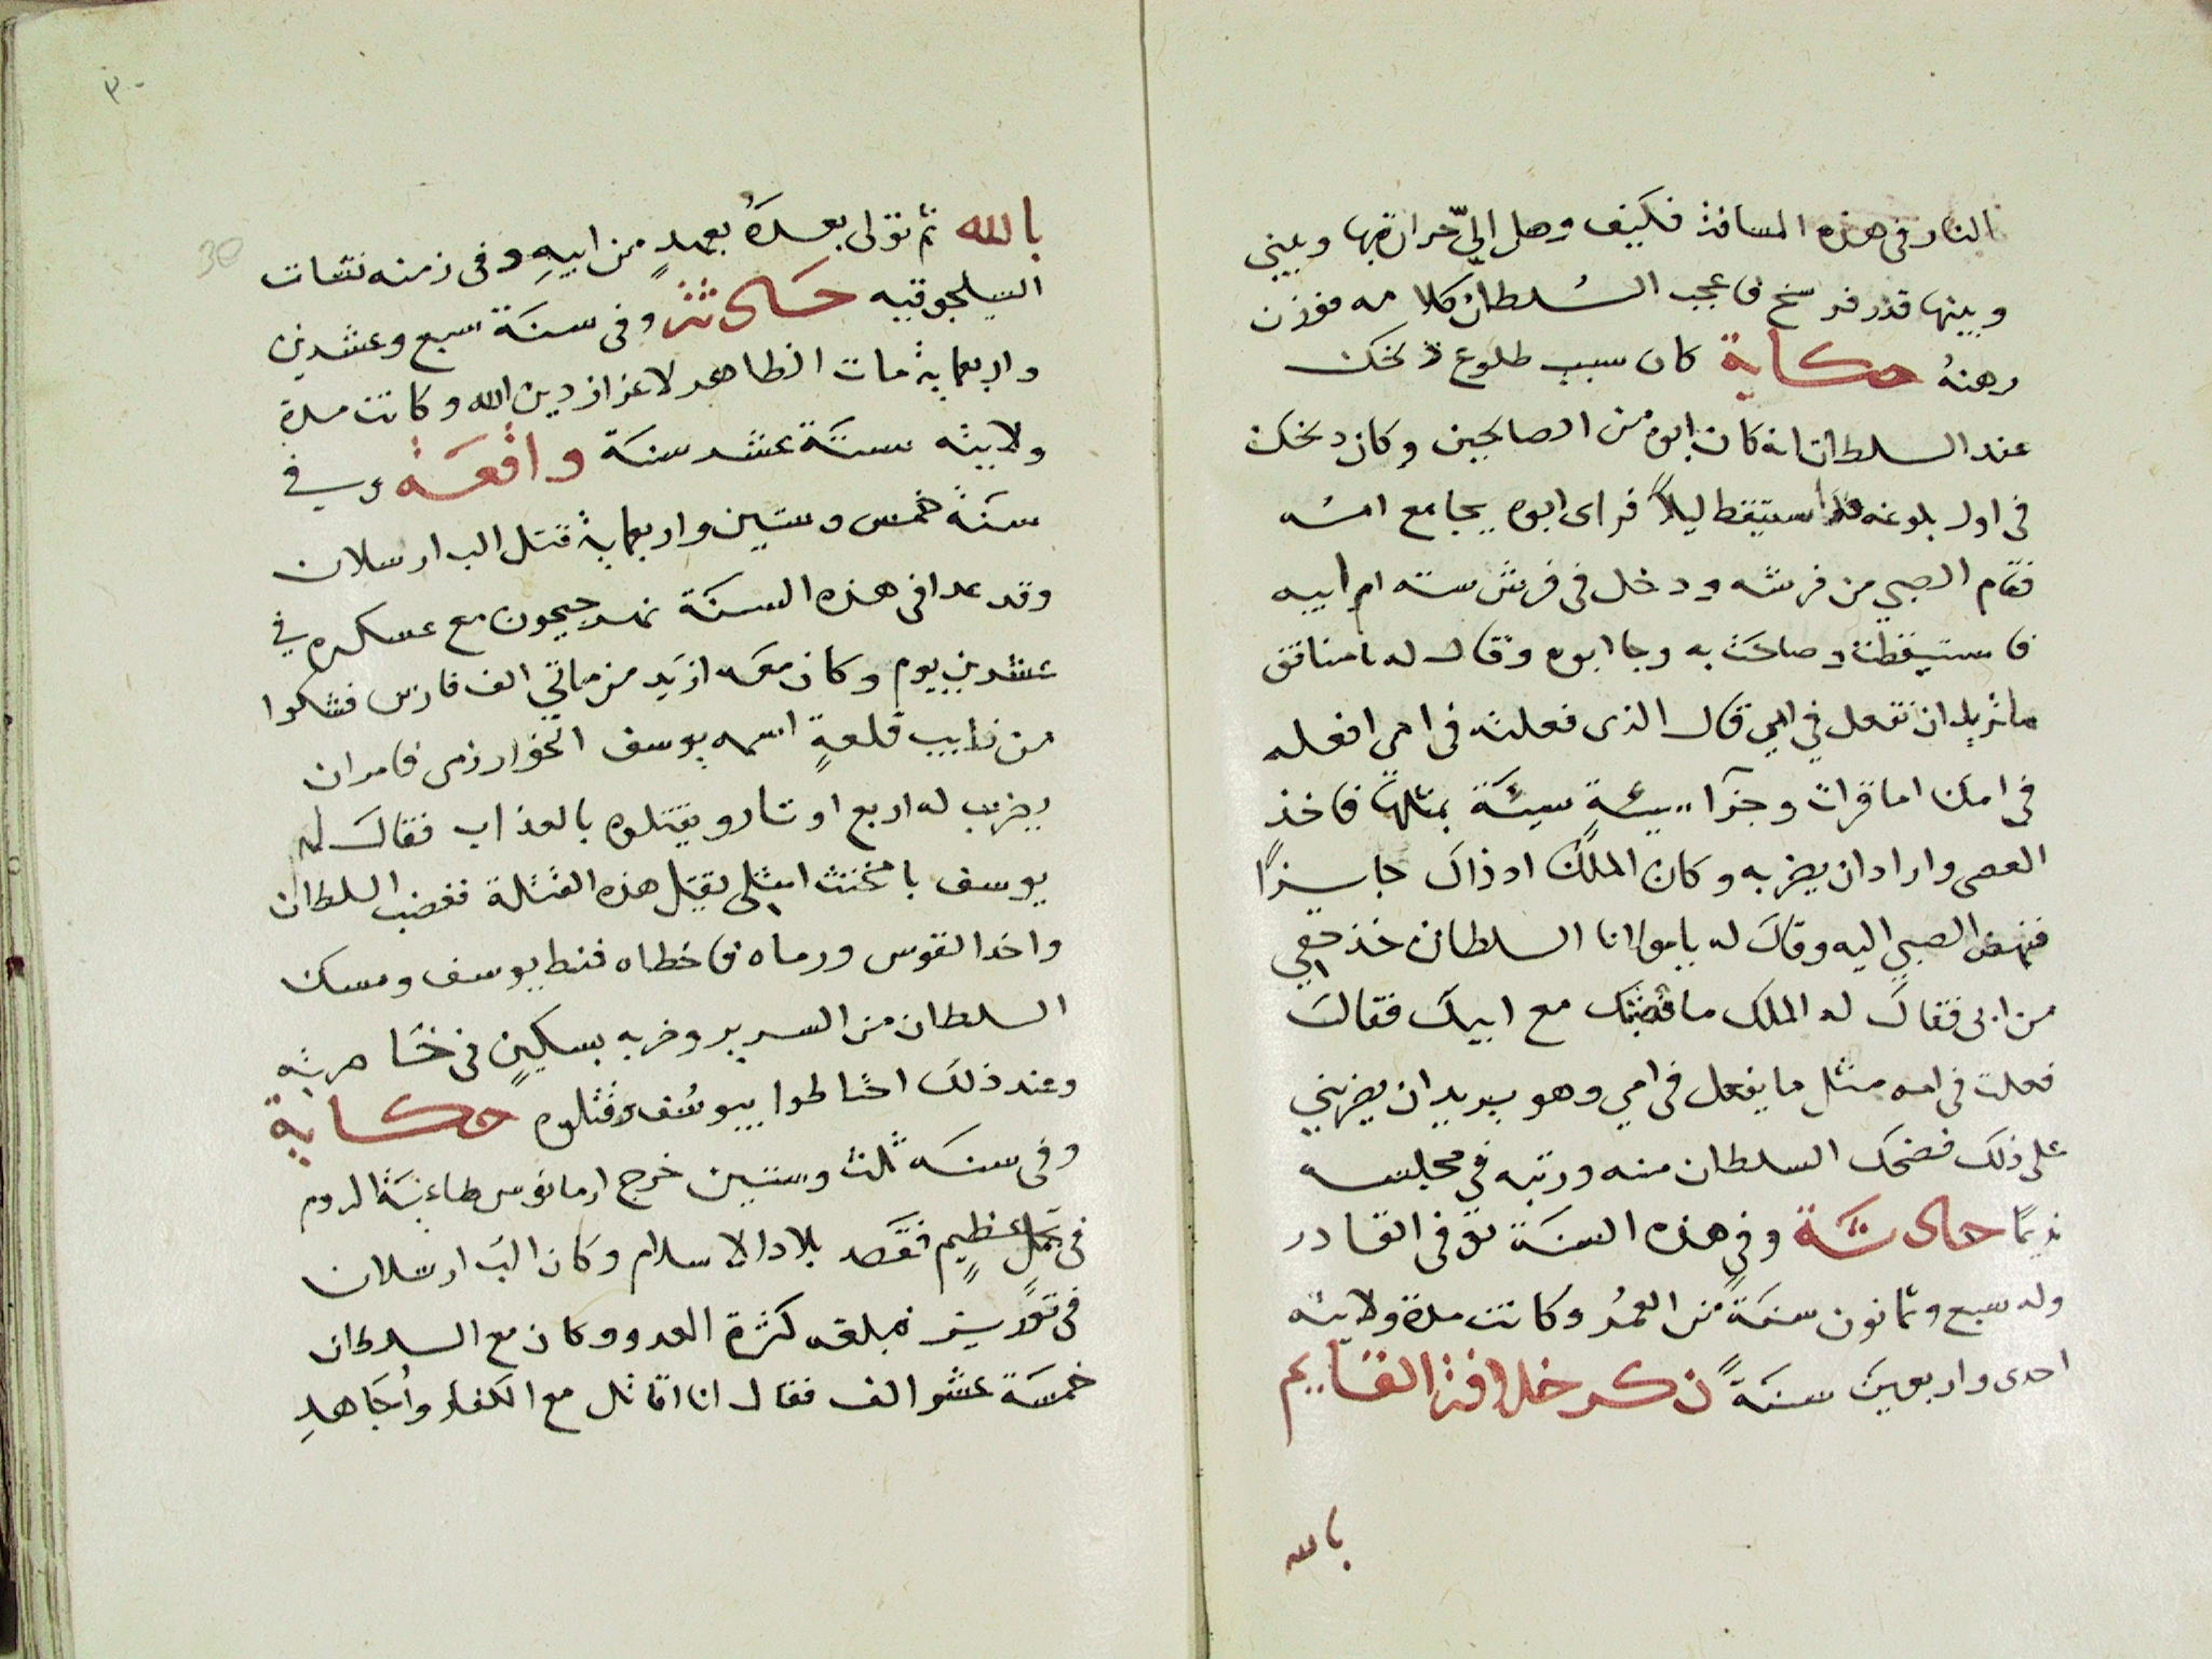 النار في هذه المسافة فكيف وصل اليّ حرارتها وبيني
وبينها قدر فرسخ فاعجب السلطان كلامه فوزن
رهنهُ حكاية كان سبب طلوع دلخك
عند السلطان انه كان ابوه من الصالحين وكان دلخك
في اول بلوغه فاستيقظ ليلاً فراى ابوه يجامع امه
فقام الصبي من فرشه ودخل في فرش سته ام ابيه
فاستيقظت وصاحت به وجا ابوه وقال له يا منافق
ما تريد ان تفعل في امي قال الذي فعلته في امي افعله
في امك اما قرات وجزآء سيئةٍ سيئة بمثلها فاخذ
العصى واراد ان يضربه وكان الملك اذ ذاك جايزًا
فنهض الصبي اليه وقال له يا مولانا السلطان خذ حقي
من ابي فقال له الملك ما قضيتك مع ابيك فقال
فعلت في امه مثل ما يفعل في امي وهو يريد ان يضربني
على ذلك فضحك السلطان منه ورتبه في مجلسه
نديمًا حادثة وفي هذه السنة توفي القادر
وله سبع وثمانون سنةً من العمر وكانت مدة ولايته
احدى واربعين سنةً ذكر خلافة القايم
بالله
٣٠
30
بالله ثم تولى بعده بعهدٍ من ابيهِ وفي زمنه نشات
السلجوقيه حادثة وفي سنة سبع وعشرين
واربعماية مات الظاهر لاعزاز دين الله وكانت مدة
ولايته ستة عشر سنة واقعة وفي
سنة خمس وستين واربعماية قتل الب ارسلان
وقد عدا في هذه السنة نهر جيحون مع عسكره في
عشرين يوم وكان معه ازيد من مائتي الف فارس فشكوا
من نايب قلعةٍ اسمه يوسف الخوارزمي فامر ان
يضرب له اربع اوتاد ويقتلوه بالعذاب فقال له
يوسف يا مخنث امثلي يقتل هذه القتلة فغضب السلطان
واخذ القوس ورماه فاخطاه فنط يوسف ومسك
السلطان من السرير وضربه بسكينٍ في خاصرته
وعند ذلك احتاطوا بيوسف وقتلوه حكاية
وفي سنه ثلث وستين خرج ارمانوس طاغية الروم
في عظيمٍ فقصد بلاد الاسلام وكان الب ارسلان
في فبلغه كثرة العدو وكان مع السلطان
خمسة عشر الف فقال انا اقاتل مع الكفار واجاهدِ